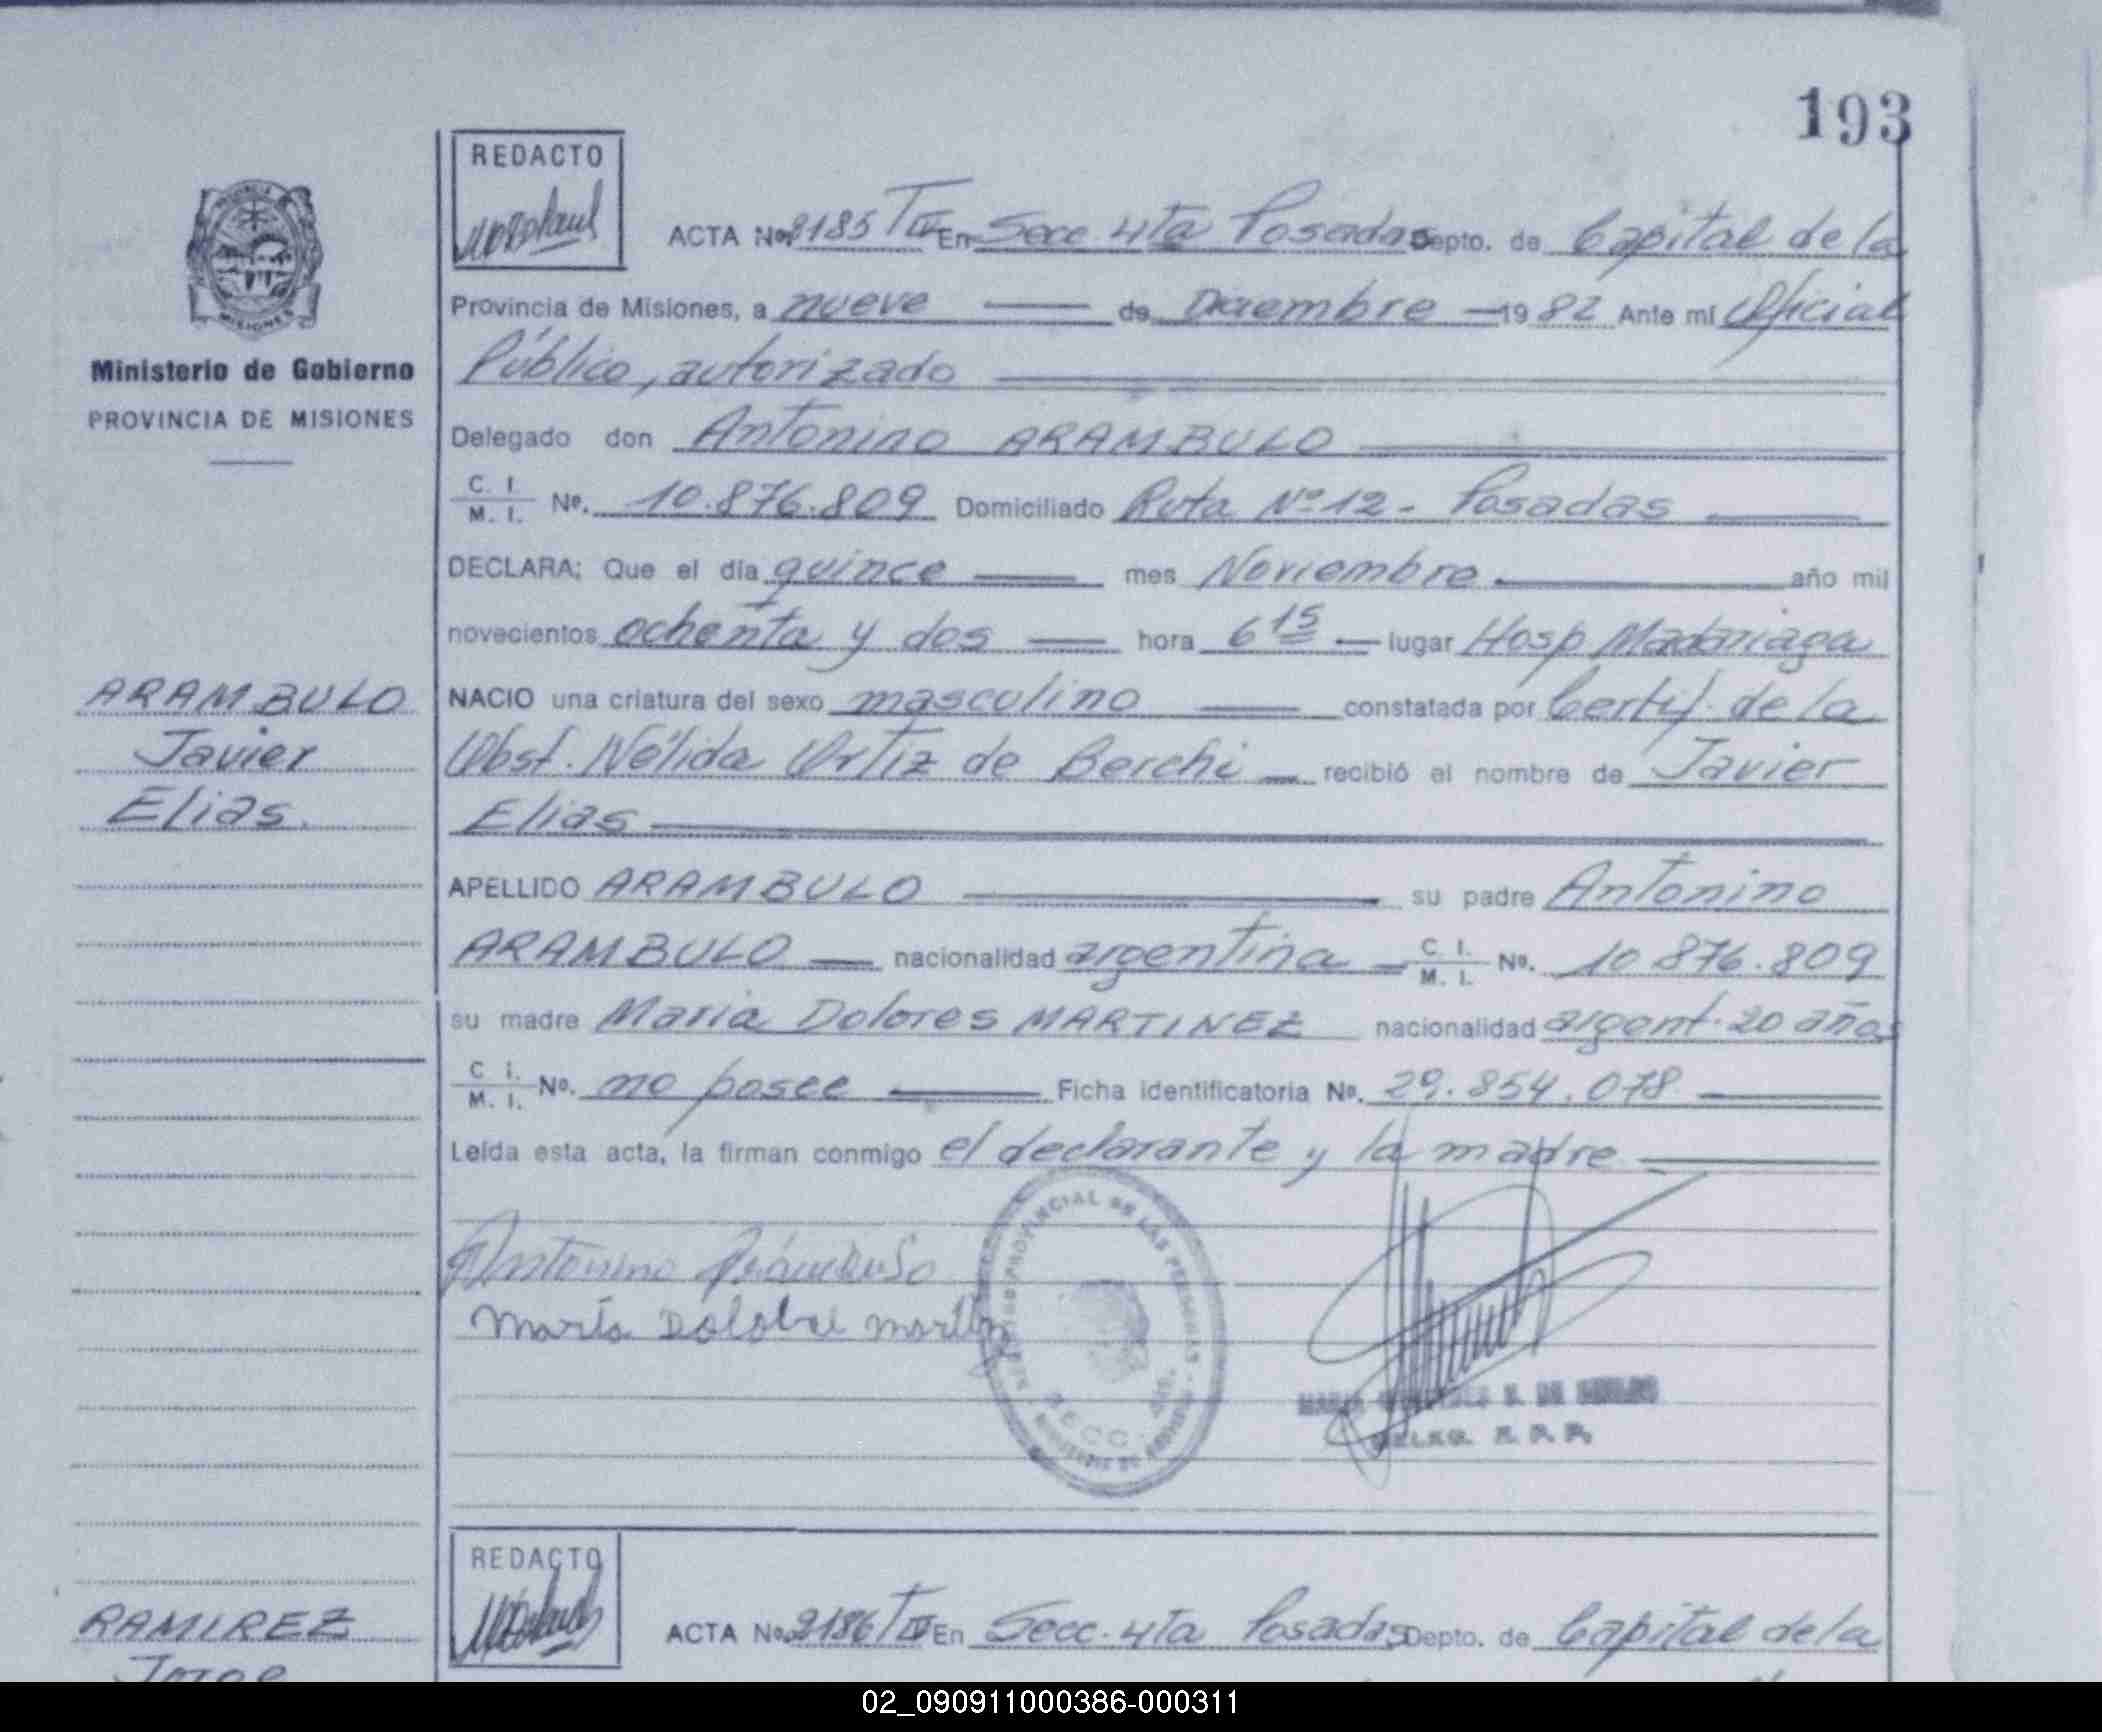 193
REDACTO
ACTA No. 2185 T IV En Secc. 4ta Posadas Depto. de Capital de la
Provincia de Misiones, a nueve de Diciembre 1982 Ante mí Oficial
Público, autorizado
Delegado don Antonino ARAMBULO
C. I. / M. I. No. 10.876.809 Domiciliado Ruta Nº 12 - Posadas
DECLARA; Que el día quince mes Noviembre año mil
novecientos ochenta y dos hora 6 15 lugar Hosp Madariaga
NACIO una criatura del sexo masculino constatada por Certif. de la
Obst. Nélida Ortiz de Berchi recibió el nombre de Javier
Elias
APELLIDO ARAMBULO su padre Antonino
ARAMBULO nacionalidad argentina C. I. / M. I. No. 10.876.809
su madre Maria Dolores MARTINEZ nacionalidad argent. 20 años
C. I. / M. I. No. no posee Ficha identificatoria No. 29.854.078
Leída esta acta, la firman conmigo el declarante y la madre
Antonino
María
PROVINCIAL DE LAS PERSONAS
Ministerio de Gobierno
PROVINCIA DE MISIONES
MISIONES
ARAMBULO
Javier
Elias.
REDACTO
ACTA No. 2186 T IV En Secc. 4ta Posadas Depto. de Capital de la
RAMIREZ
Jorge
02_090911000386-000311